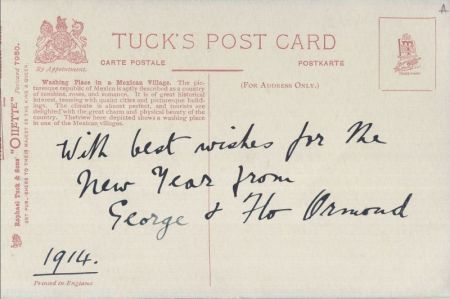 A
By Appointment.
TUCK'S POST CARD
CARTE POSTALE
POSTKARTE
(FOR ADDRESS ONLY.)
Washing Place in a Mexican Village. The pic-
turesque republic of Mexico is aptly described as a country
of sunshine, roses, and romance. It is of great historical
interest, teeming with quaint cities and picturesque build-
ings. The climate is almost perfect, and tourists are
delighted with the great charm and physical beauty of the
country. The view here depicted shows a washing place
in one of the Mexican villages.
Raphael Tuck & Sons' "OILETTE" Postcard 7950.
ART PUBLISHERS TO THEIR MAJESTIES THE KING & THE QUEEN.
With best wishes for the
New Year from
George & Flo Ormond
1914.
Printed in England